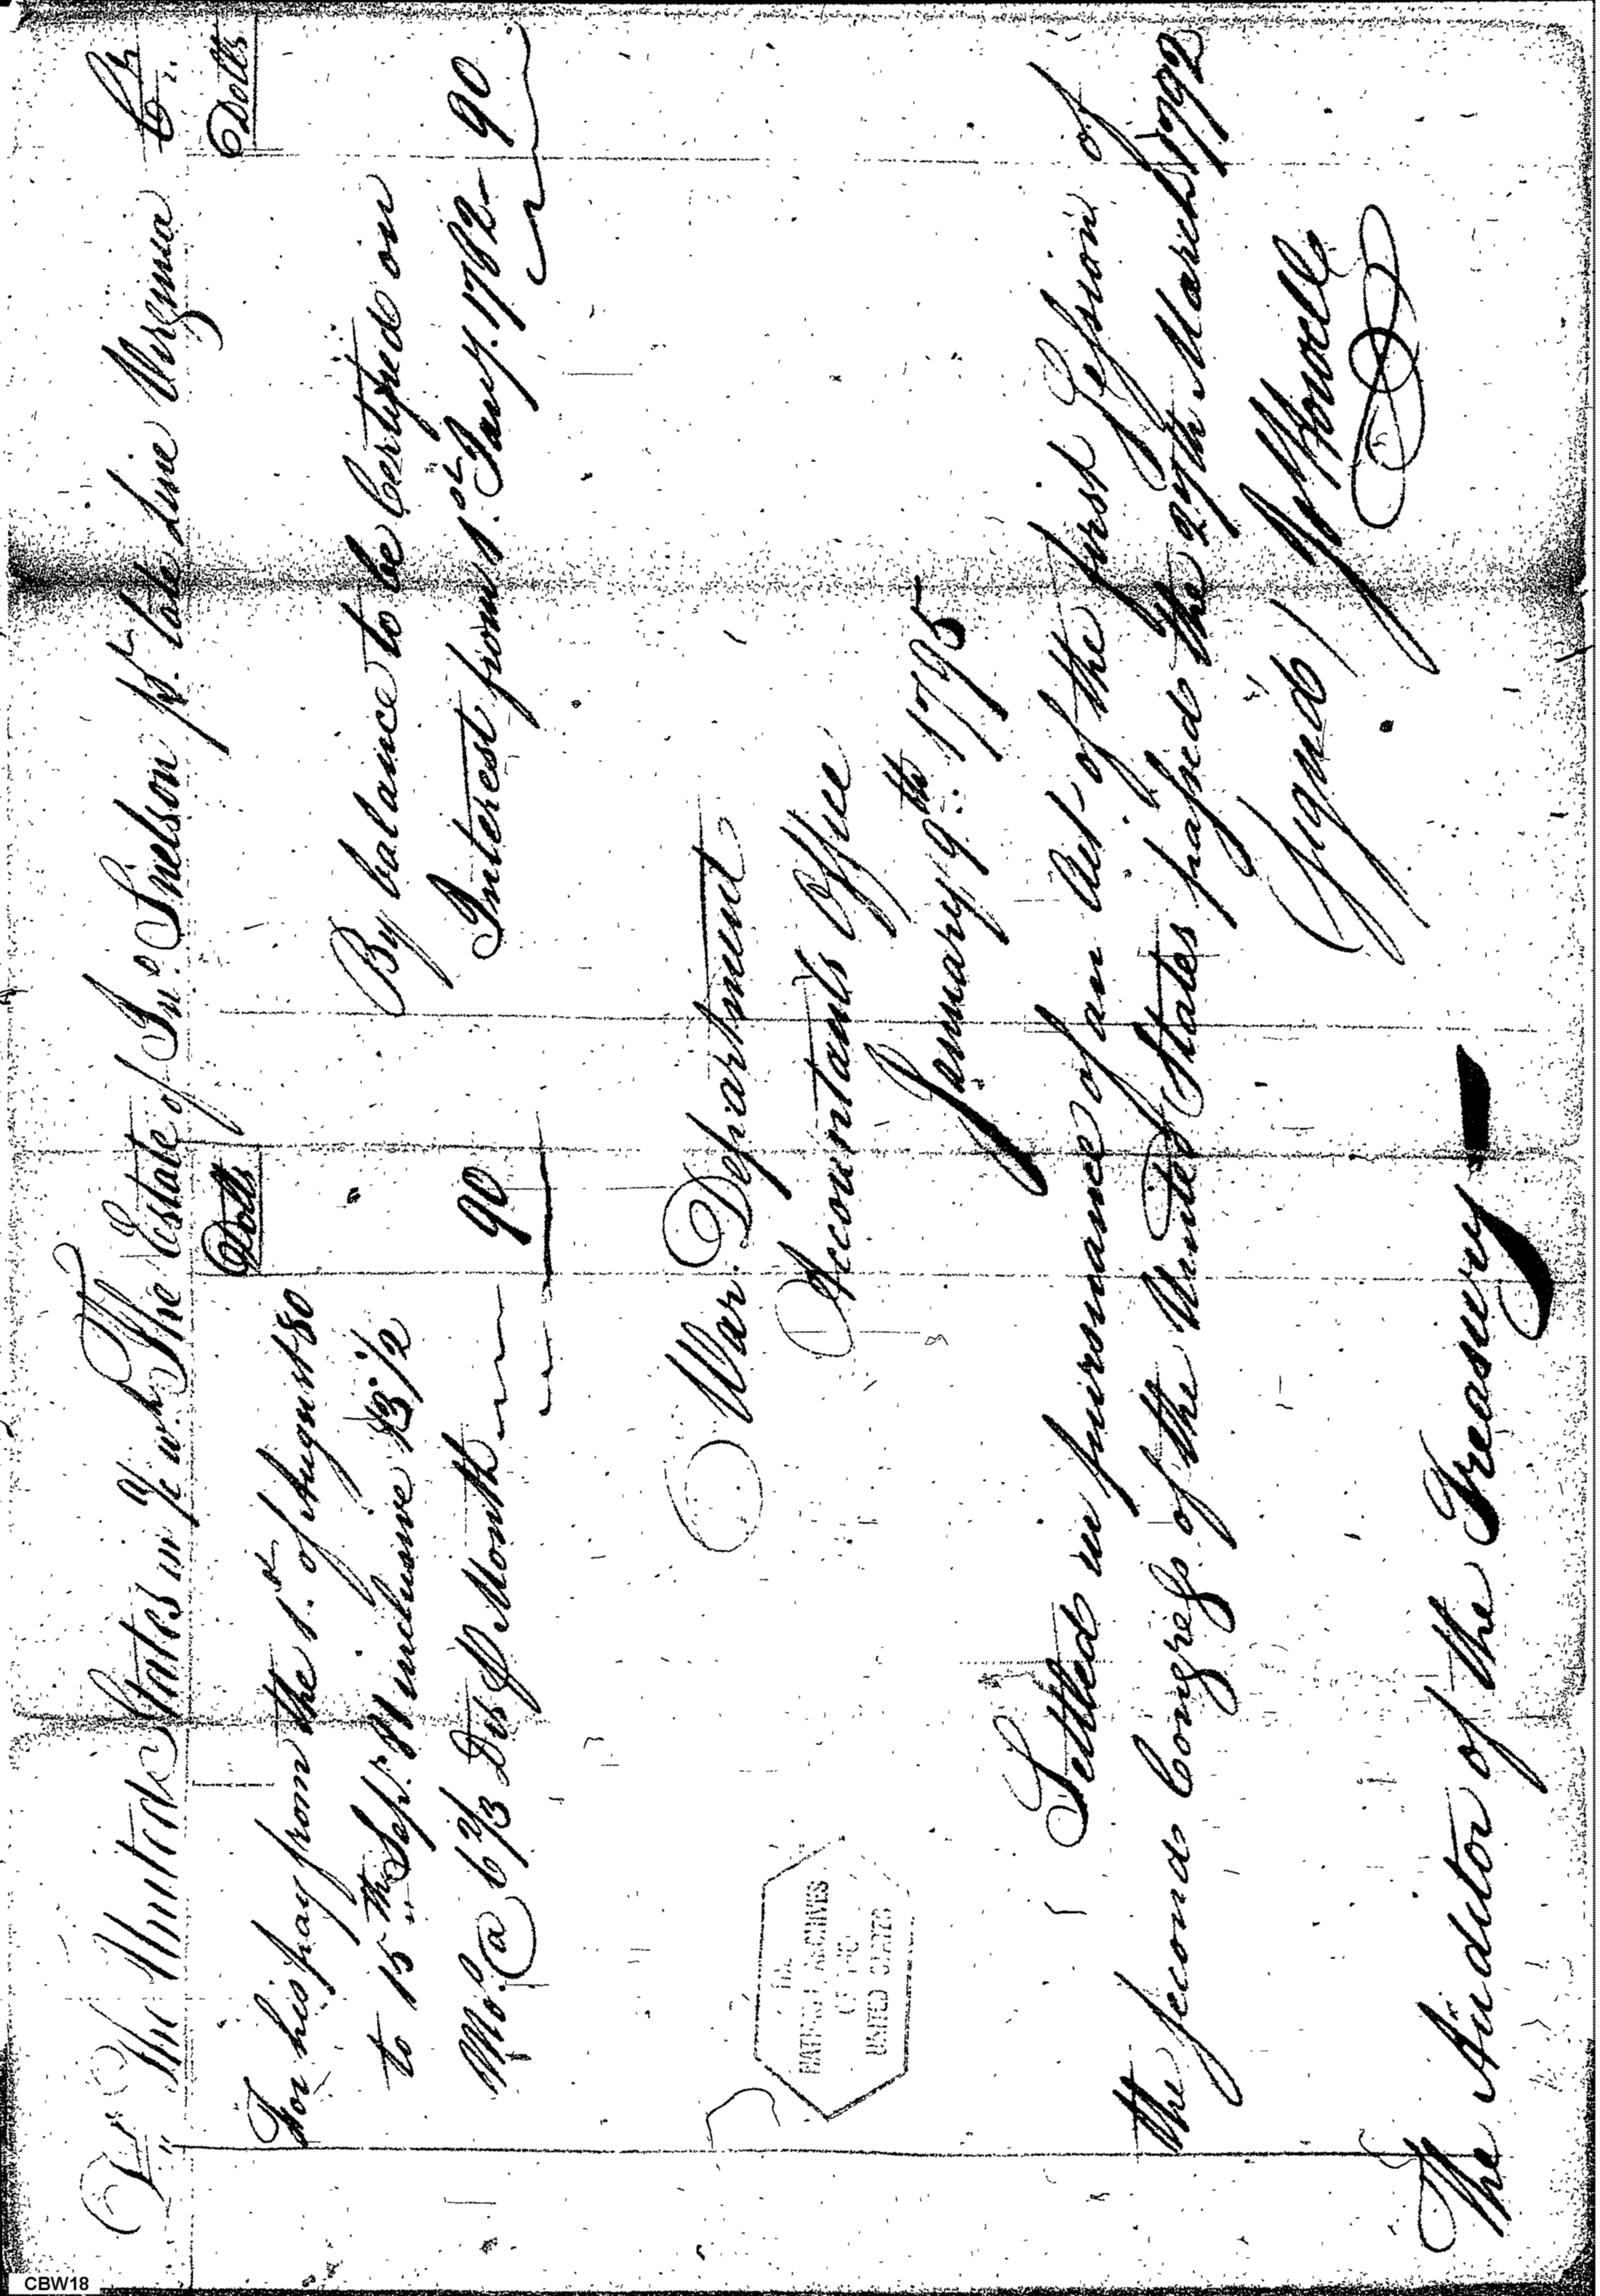 Dr. The United States in a/c wth The Estate of Jno. Snelson pt. late line Virginia Cr.
Dolls
Dolls
For his pay from the 1st. of August 80
to 15th Sept. 81 inclusive 13 1/2
Mos. @ 6 2/3 Drs p Month 90
By balance to be Certified on
Interest from 1st. Jany. 1782 - 90
War Department
Accountants Office
January 9th. 1795
Settled in pursuance of an Act of the first Session of
the second Congress of the United States passed the 27th March 1792
Signed / J Howell
The Auditor of the Treasury
THE
NATIONAL ARCHIVES
OF THE
UNITED STATES
CBW18